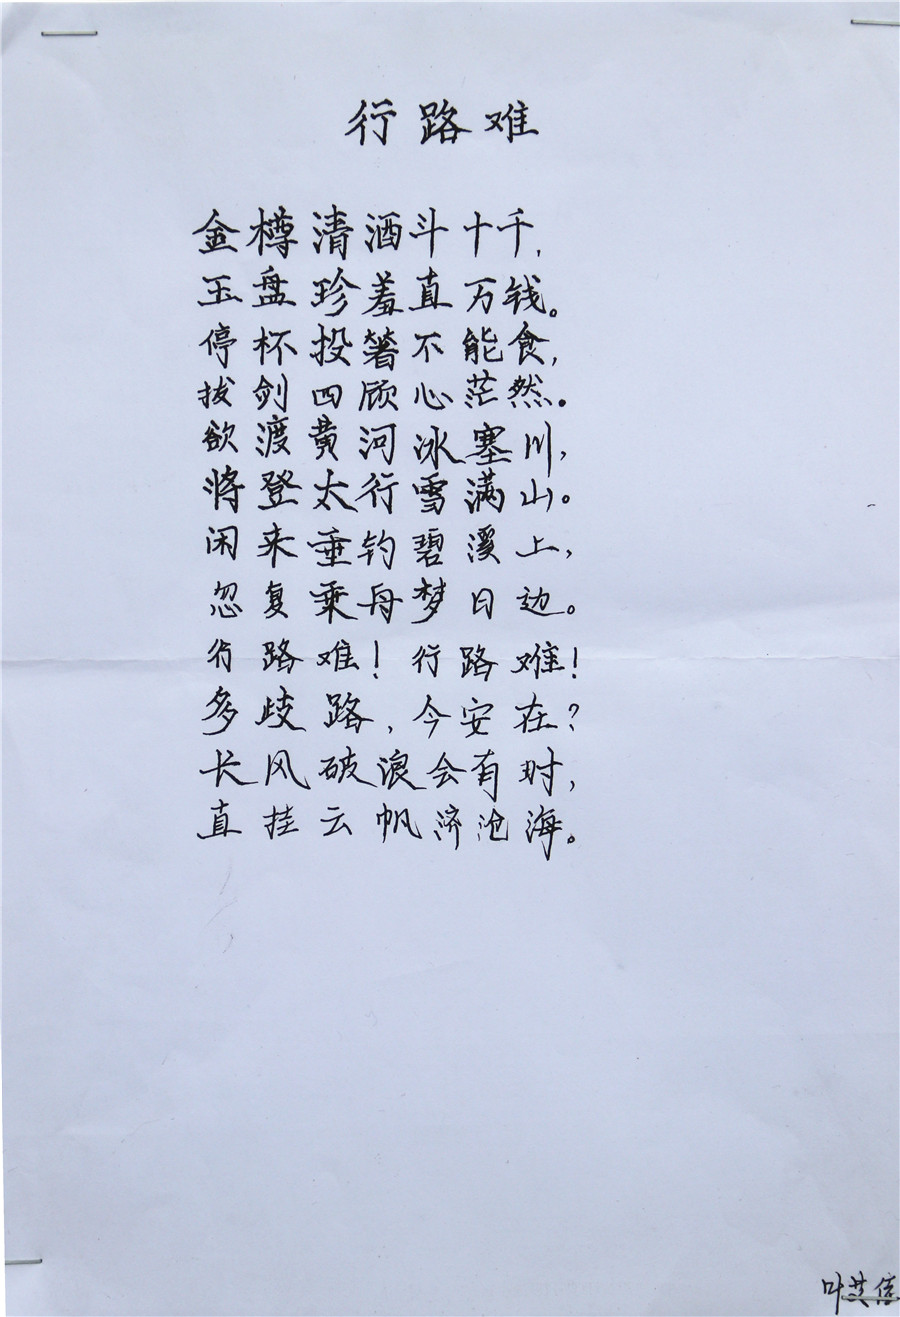 行路难
金樽清酒斗十千,
玉盘珍羞直万钱。
停杯投箸不能食,
拔剑四顾心茫然。
欲渡黄河冰塞川,
将登太行雪满山。
闲来垂钓碧溪上,
忽复乘舟梦日边。
行路难!行路难!
多歧路,今安在?
长风破浪会有时,
直挂云帆济沧海。
叶